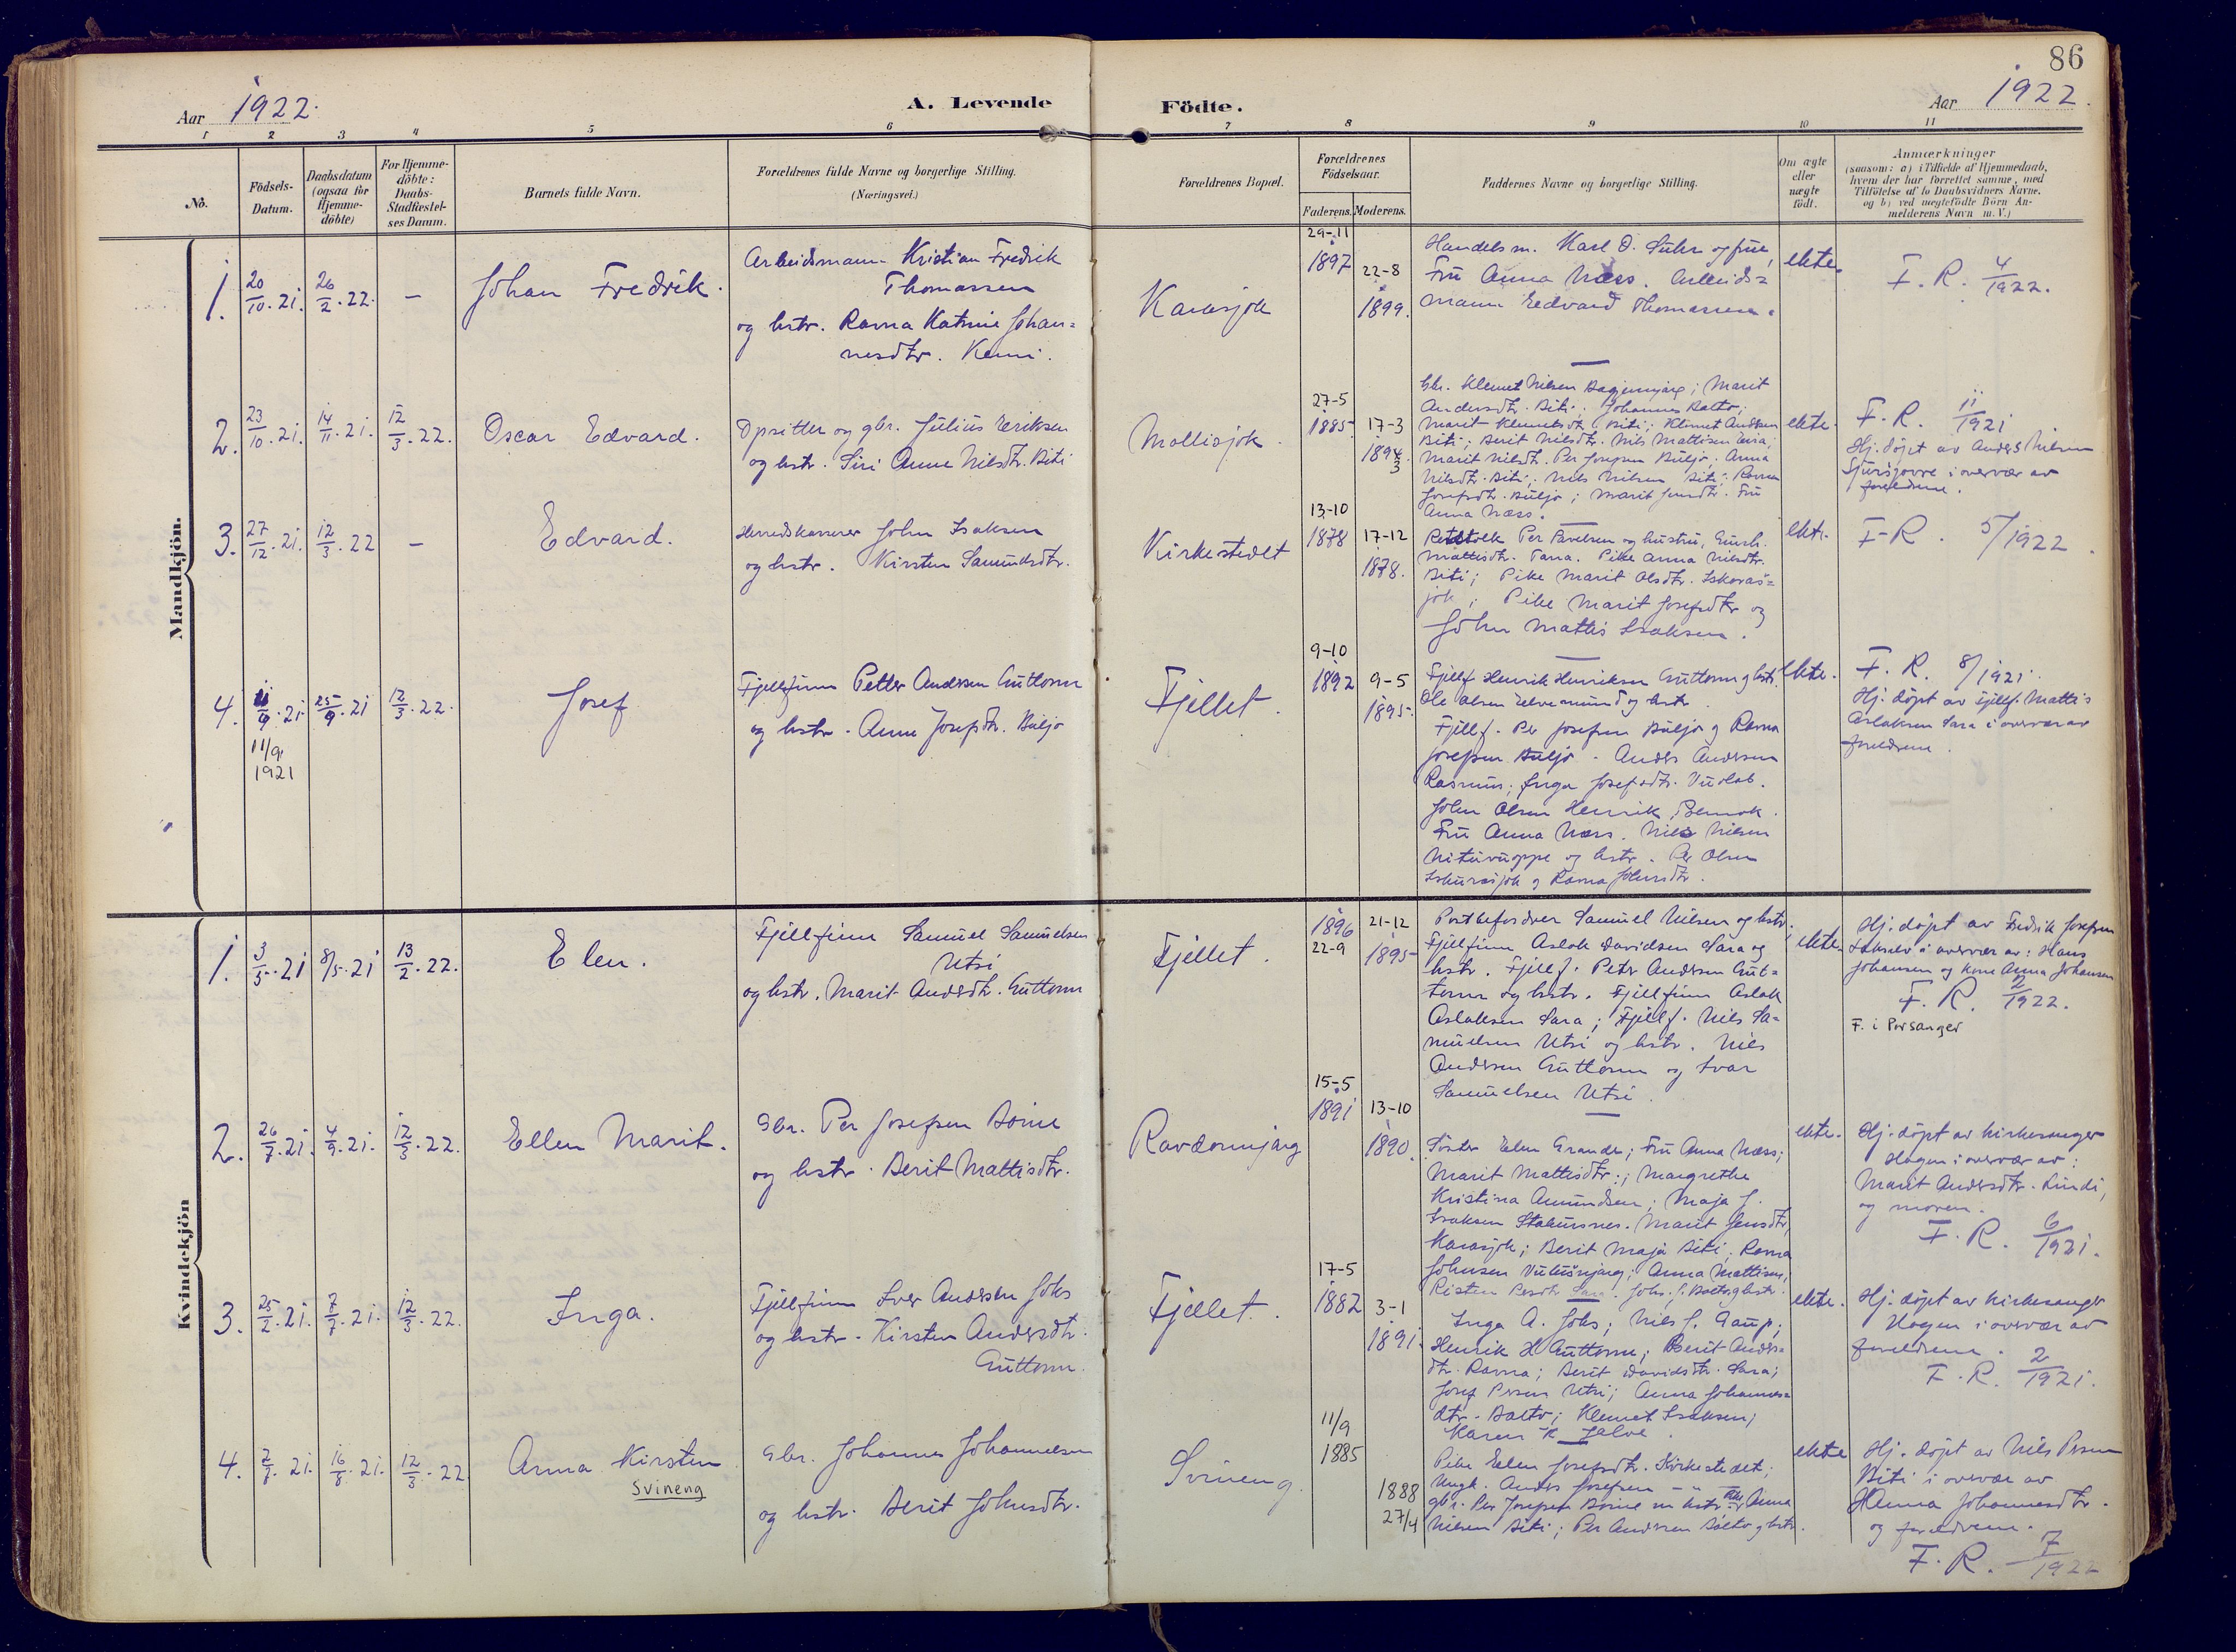 86
Aar 1922.
A. Levende
Födte.
Aar 1922.
1 2 3 4 5 6 7 8 9 10 11
No.
Födsels-
Datum.
Daabsdatum
(ogsaa for
Hjemme-
döbte)
For Hjemme-
döbte:
Daabs-
Stadfæstel-
ses Datum.
Barnets fulde Navn.
Forældrenes fulde Navne og borgerlige Stilling.
(Næringsvei.)
Forældrenes Bopæl.
Forældrenes
Födselsaar.
Faderens. Moderens.
Faddernes Navne og borgerlige Stilling.
Om ægte
eller
uægte
födt.
Anmærkninger
(saasom: a) i Tilfælde af Hjemmedaab,
hvem der har forrettet samme, med
Tilföielse af to Daabsvidners Navne,
og b) ved uægtefödte Börn An-
melderens Navn m. V.)
Mandkjön.
1.
20/10. 21.
26/2. 22.
–
Johan Fredrik.
Arbeidsmann Kristian Fredrik
Thomassen
og hstr. Ravna Katrine Johan=
nesdtr. Kemi.
Karasjok
29-11
1897
22-8
1899.
Handelsm. Karl O. Suhr og frue,
Fru Anna Næss. Arbeids=
mann Edvard Thomassen.
ekte.
F. R. 4/1922.
2.
23/10. 21.
14/11. 21.
12/3. 22.
Oscar Edvard.
Opsitter og gbr. Julius Eriksen
og hstr. Siri Anne Nilsdtr. Biti
Mollisjok.
27-5
1885
17-3
1894
3
Gbr. Klemet Nilsen ; Marit
Andersdtr. Biti; Johannes Balto;
Marit Klemetsdtr. Biti; Klemet Andersen
Biti; Berit Nilsdtr. Nils Mattisen
Marit Nilsdtr. Per Josefsen Buljo; Anna
Nilsdtr. Biti; Nils Nilsen Biti; Ravna
Josefsdtr. Buljo; Marit Jensdtr. Fru
Anna Næss.
ekte.
F. R. 11/1921
Hj. døpt av Anders Nilsen
i overvær av
foreldrene.
3.
27/12. 21.
12/3. 22
–
Edvard.
Herredskasserer John Isaksen
og hstr. Kirsten Samuelsdtr.
Kirkestedet
13-10
1878
17-12
1878.
Per Pavelsen og hustru,
Mattisdtr. Pike Anna Nilsdtr.
Biti; Pike Marit Olsdtr. Iskoras=
jok; Pike Marit Josefsdtr og
John Mattis Isaksen.
ekte.
F-R. 5/1922.
4.
11/9. 21.
11/9
1921
25/9. 21
12/3. 22.
Josef
Fjellfinn Petter Andersen Guttorm
og hstr. Anne Josefsdtr. Buljo
Fjellet.
9-10
1892
9-5
1895.
Fjellf. Henrik Henriksen Guttorm og hstr.
Ole Olsen og hstr
Fjellf. Per Josefsen Buljo og Ravna
Josefsen Buljo. Anders Andersen
Rasmus; Inga Josefsdtr. Vuolab.
John Olsen Henrik,
Fru Anna Næss. Nils Nilsen
Nituvuoppe og hstr. Per Olsen
Iskurasjok og Ravna Johnsdtr.
ekte.
F. R. 8/1921.
Hj. døpt av fjellf. Mattis
Aslaksen Sara i overvær av
foreldrene.
Kvindekjön
1.
3/5. 21
8/5. 21
13/2. 22.
Elen.
Fjellfinn Samuel Samuelsen
Utsi
og hstr. Marit Andersdtr. Guttorm
Fjellet.
1896
22-9
21-12
1895
Postbefordrer Samuel Nilsen og hstr.;
Fjellfinn Aslak Davidsen Sara og
hstr. Fjellf. Peter Andersen Gut=
torm og hstr. Fjellfinn Aslak
Aslaksen Sara; Fjellf. Nils Sa=
muelsen Utsi og hstr. Nils
Andersen Guttorm og Ivar
Samuelsen Utsi.
ekte
Hj. døpt av Fredrik Josefsen
Lakselv i overvær av: Hans
Johansen og kone Anna Johansen
F. R. 2/1922.
F. i Porsanger
2.
26/7. 21.
4/9. 21.
12/3. 22.
Ellen Marit.
Gbr. Per Josefsen Boine
og hstr. Berit Mattisdtr.
Ravdonnjarg
15-5
1891
13-10
1890.
Søster Elen Grande; Fru Anna Næss;
Marit Mattisdtr.; Margrethe
Kristina Amundsen; Maja J.
Isaksen Stabursnes. Marit Jensdtr,
Karasjok; Berit Maja Biti; Ravna
Johnsen ; Anna Mattisen,
Risten Persdtr Sara. Johs. J. Balto og hstr.
ekte.
Hj. døpt av kirkesanger
Hagen i overvær av:
Marit Andersdtr. Lindi,
og moren.
F. R. 6/1921.
3.
25/2. 21.
7/7. 21.
12/3. 22.
Inga.
Fjellfinn Iver Andersen Johs
og hstr. Kirsten Andersdtr.
Guttorm.
Fjellet.
17-5
1882
3-1
1891.
Inga A. Johs; Nils J. Gaup;
Henrik H Guttorm; Berit Anders=
dtr. Ravna; Berit Davidsdtr. Sara;
Josef Persen Utsi; Anna Johannes=
dtr. Balto; Klemet Isaksen;
Karen K Jalve.
ekte.
Hj. døpt av kirkesanger
Hagen i overvær av
foreldrene.
F. R. 2/1921.
4.
2/7. 21.
16/8. 21.
12/3. 22
Anna Kirsten
Svineng
Gbr. Johannes Johannesen
og hstr. Berit Johnsdtr.
Svineng.
11/9
1885
1888
27/4
Pike Elen Josefsdtr. Kirkestedet;
Ungk. Anders Josefsen – " –
gbr. Per Josefsen Boine m hstr. Pike Anna
Nilsen Biti; Per Andersen Balto og hstr.
ekte
Hj. døpt av Nils Persen
Biti i overvær av
Anna Johannesdtr.
og foreldrene.
F. R. 7/1922